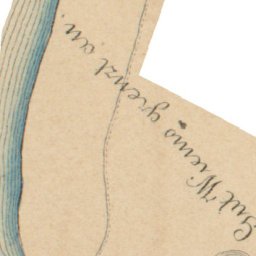 Gut Wiems grenzt an.